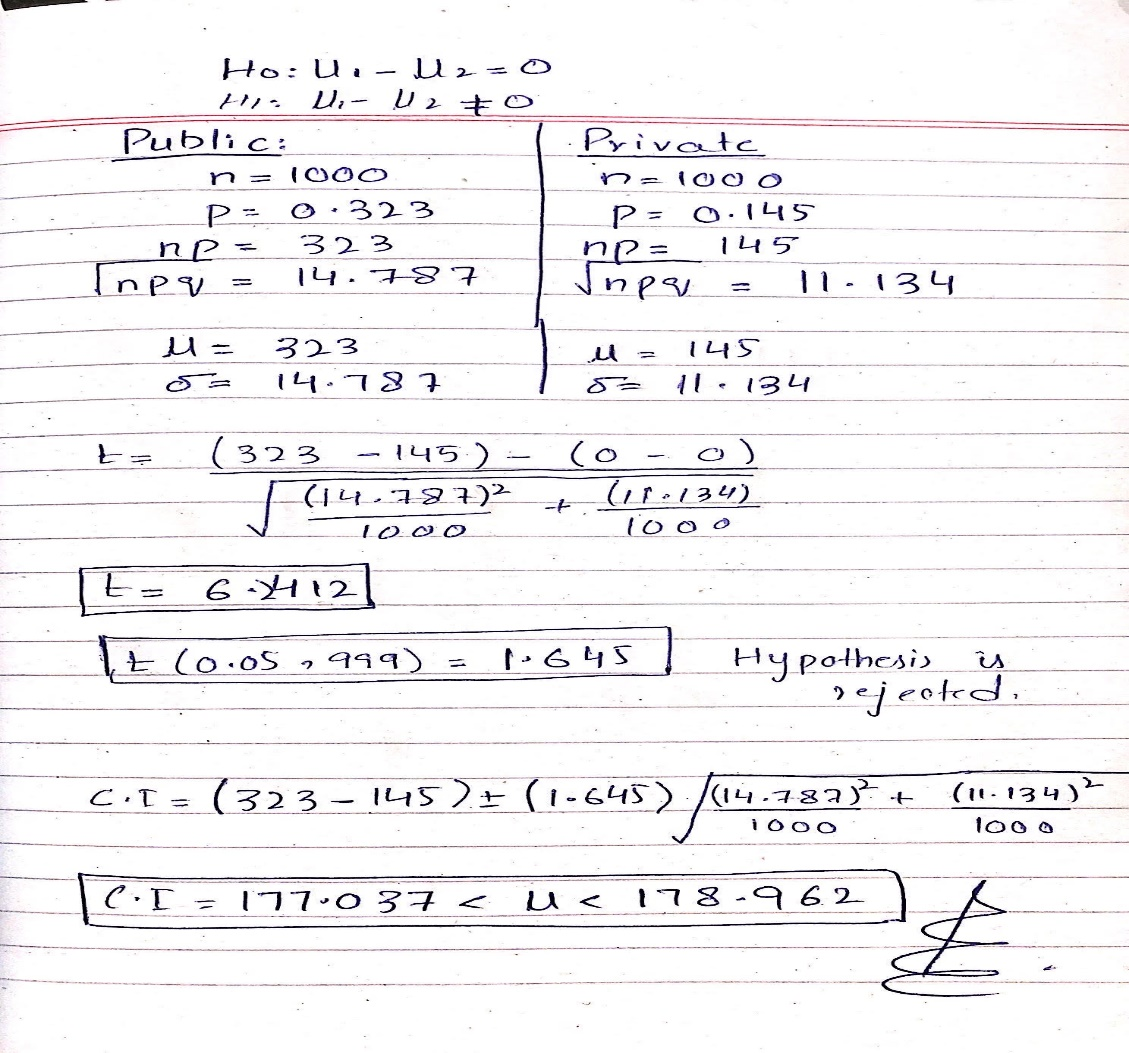 Ho: μ₁ - μ₂ = 0
H₁: μ₁ - μ₂ ≠ 0
Public:
n = 1000
p = 0.323
np = 323
√npq = 14.787
μ = 323
σ = 14.787
Private
n = 1000
p = 0.145
np = 145
√npq = 11.134
μ = 145
σ = 11.134
t = (323 - 145) - (0 - 0)
√ (14.787)² + (11.134)
1000 1000
t = 6.412
t (0.05, 999) = 1.645
Hypothesis is
rejected.
C.I = (323 - 145) ± (1.645) √ (14.787)² + (11.134)²
1000 1000
C.I = 177.037 < μ < 178.962